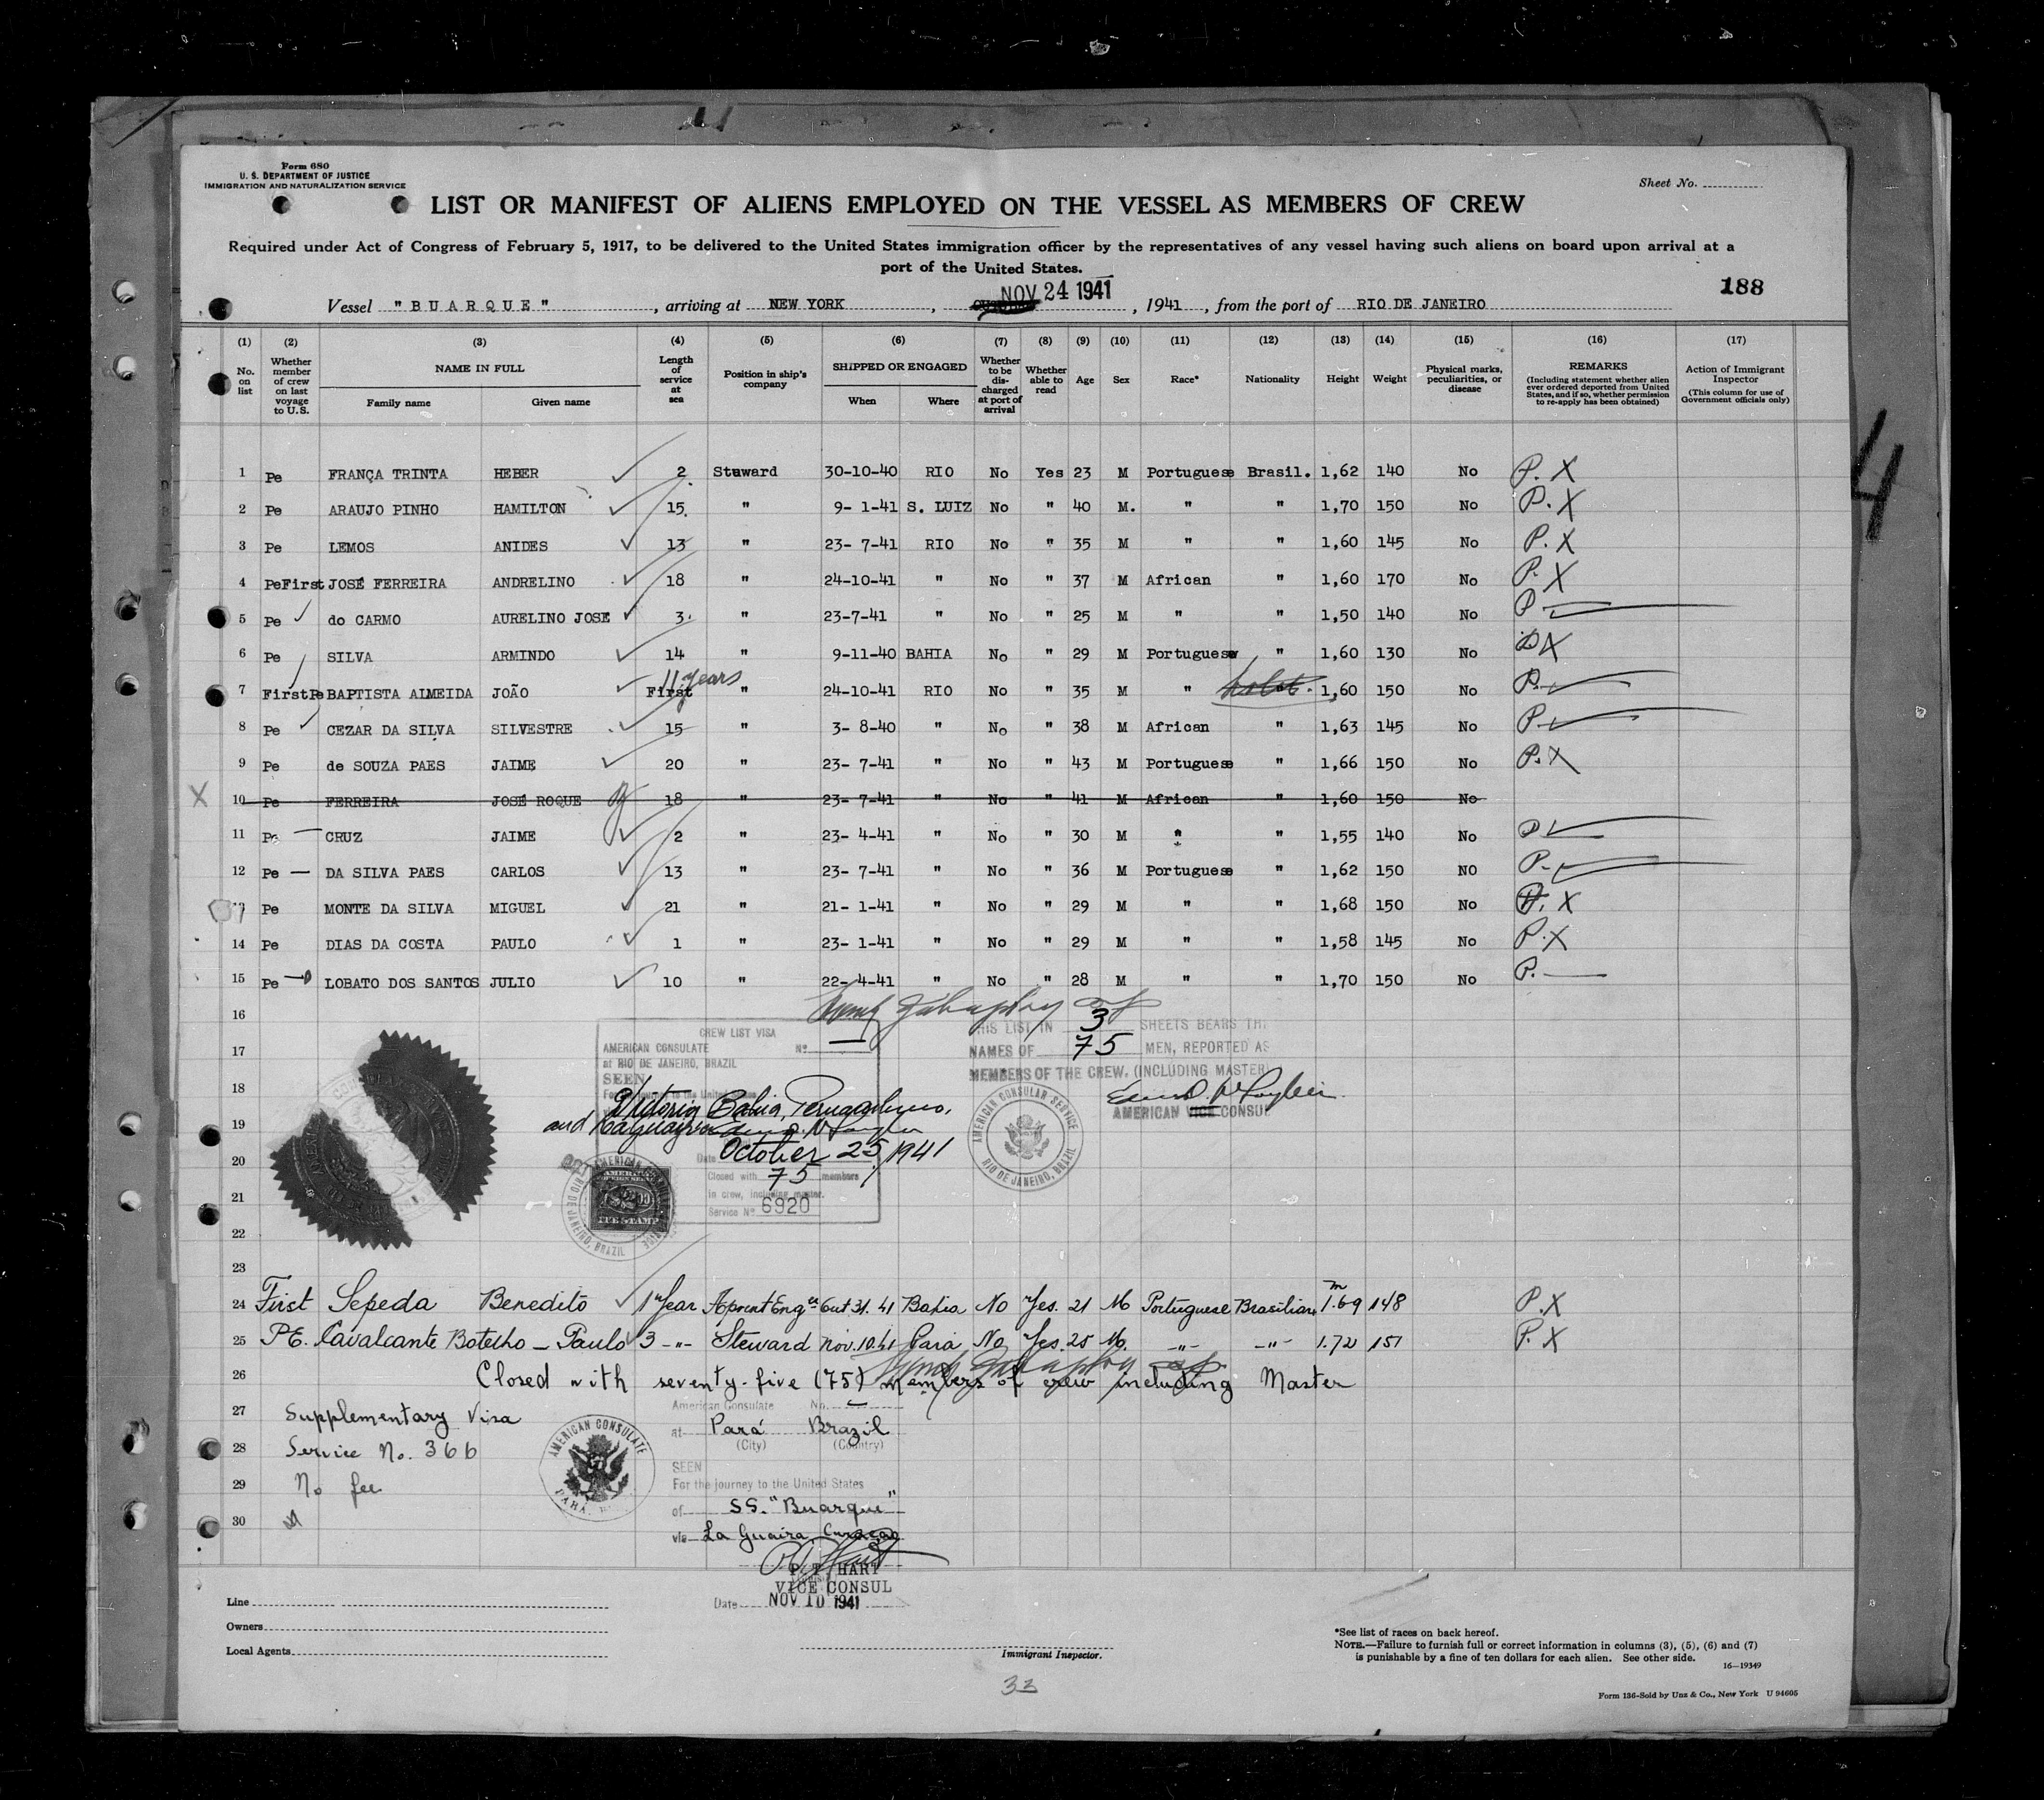 Form 680
U. S. DEPARTMENT OF JUSTICE
IMMIGRATION AND NATURALIZATION SERVICE
Sheet No.
LIST OR MANIFEST OF ALIENS EMPLOYED ON THE VESSEL AS MEMBERS OF CREW
Required under Act of Congress of February 5, 1917, to be delivered to the United States immigration officer by the representatives of any vessel having such aliens on board upon arrival at a
port of the United States.
188
NOV 24 1941
Vessel "BUARQUE", arriving at NEW YORK, , 1941, from the port of RIO DE JANEIRO
(1) (2) (3) (4) (5) (6) (7) (8) (9) (10) (11) (12) (13) (14) (15) (16) (17)
No. on list
Whether member of crew on last voyage to U.S.
NAME IN FULL
Family name Given name
Length of service at sea
Position in ship's company
SHIPPED OR ENGAGED
When Where
Whether to be discharged at port of arrival
Whether able to read
Age
Sex
Race*
Nationality
Height
Weight
Physical marks, peculiarities, or disease
REMARKS
(Including statement whether alien ever ordered deported from United States, and if so, whether permission to re-apply has been obtained)
Action of Immigrant Inspector
(This column for use of Government officials only)
4
1 Pe FRANÇA TRINTA HEBER 2 Steward 30-10-40 RIO No Yes 23 M Portuguese Brasil. 1,62 140 No P. X
2 Pe ARAUJO PINHO HAMILTON 15. " 9- 1-41 S. LUIZ No " 40 M. " " 1,70 150 No P. X
3 Pe LEMOS ANIDES 13 " 23- 7-41 RIO No " 35 M " " 1,60 145 No P. X
4 PeFirst JOSÉ FERREIRA ANDRELINO 18 " 24-10-41 " No " 37 M African " 1,60 170 No P. X
5 Pe do CARMO AURELINO JOSE 3. " 23-7-41 " No " 25 M " " 1,50 140 No P
6 Pe SILVA ARMINDO 14 " 9-11-40 BAHIA No " 29 M Portuguese " 1,60 130 No X
11 years
7 FirstPe BAPTISTA ALMEIDA JOÃO First " 24-10-41 RIO No " 35 M " 1,60 150 No P.
8 Pe CEZAR DA SILVA SILVESTRE 15 " 3- 8-40 " No " 38 M African " 1,63 145 No P
9 Pe de SOUZA PAES JAIME 20 " 23- 7-41 " No " 43 M Portuguese " 1,66 150 No P. X
X 10 Pe FERREIRA JOSÉ ROQUE 18 " 23- 7-41 " No " 41 M African " 1,60 150 No
11 Pe CRUZ JAIME 2 " 23- 4-41 " No " 30 M " " 1,55 140 No
12 Pe DA SILVA PAES CARLOS 13 " 23- 7-41 " No " 36 M Portuguese " 1,62 150 NO P.
Pe MONTE DA SILVA MIGUEL 21 " 21- 1-41 " No " 29 M " " 1,68 150 No X
14 Pe DIAS DA COSTA PAULO 1 " 23- 1-41 " No " 29 M " " 1,58 145 No P. X
15 Pe LOBATO DOS SANTOS JULIO 10 " 22- 4-41 " No " 28 M " " 1,70 150 No P.
16
17
18
19
20
21
22
23
CREW LIST VISA
AMERICAN CONSULATE No
at RIO DE JANEIRO, BRAZIL
SEEN
Victoria, Bahia, Pernambuco,
and
Date October 25, 1941
Closed with 75 members
in crew, including master.
Service No 6920
AMERICAN CONSULAR SERVICE
RIO DE JANEIRO, BRAZIL
THIS LIST IN 3 SHEETS BEARS THE
NAMES OF 75 MEN, REPORTED AS
MEMBERS OF THE CREW. (INCLUDING MASTER)
AMERICAN VICE CONSUL
AMERICAN CONSULAR SERVICE
RIO DE JANEIRO, BRAZIL
24 First Sepeda Benedito 1 Year Aprent Enger Out 31. 41 Bahia No Yes. 21 M Portuguese Brasilian 1.69 m 148 P. X
25 PE. Cavalcante Botelho - Paulo 3 -"- Steward Nov. 10.41 Pará No Yes. 25 M. -"- -"- 1.72 151 P. X
26 Closed with seventy-five (75) members of crew including Master
27 Supplementary Visa
28 Service No. 366
29 No fee
30
AMERICAN CONSULATE
PARÁ,
American Consulate No.
at Pará Brazil
(City) (Country)
SEEN
For the journey to the United States
of SS. "Buarque"
via La Guaira, Curacao
P. T. HART
VICE CONSUL
Date NOV 10 1941
Line
Owners
Local Agents
Immigrant Inspector.
33
*See list of races on back hereof.
NOTE.—Failure to furnish full or correct information in columns (3), (5), (6) and (7)
is punishable by a fine of ten dollars for each alien. See other side.
16—19349
Form 136-Sold by Unz & Co., New York U 94605